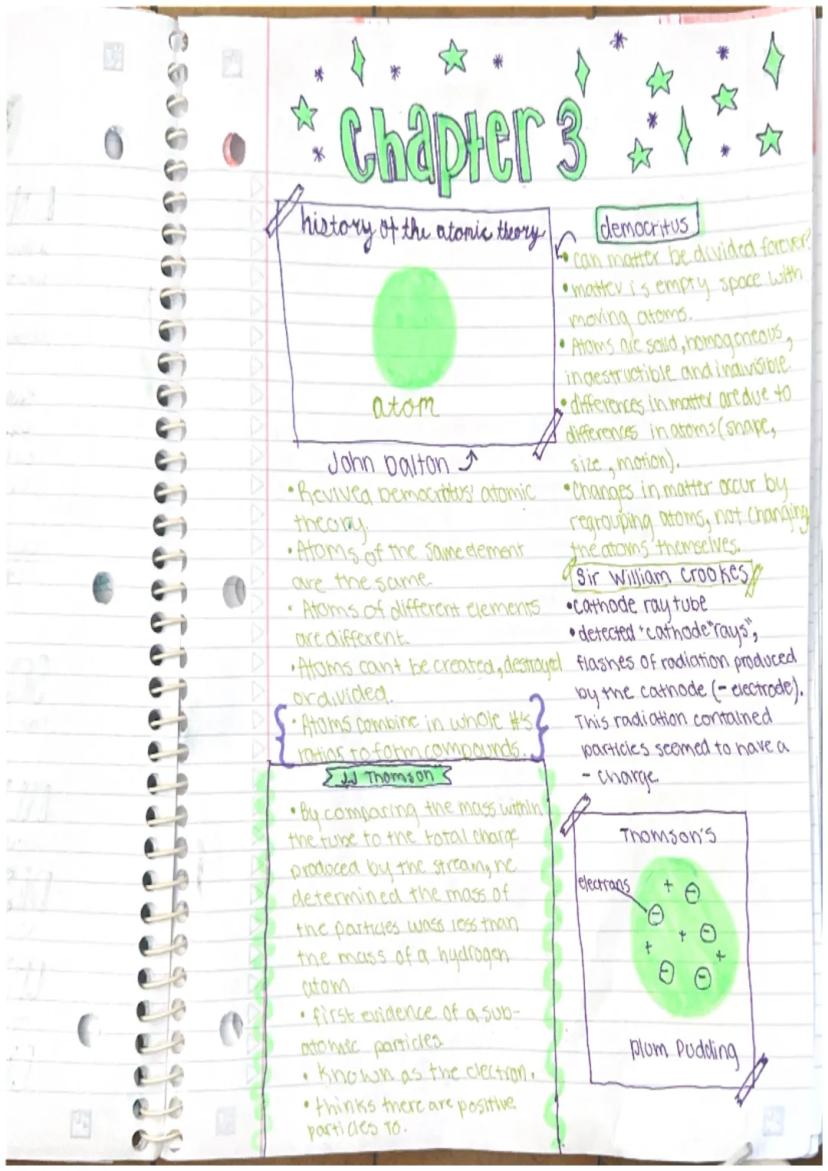 Chapter 3
history of the atomic theory
atom
John Dalton
• Revived Democritus' atomic
theory.
• Atoms of the same element
are the same.
• Atoms of different elements
are different.
• Atoms cant be created, destroyed
or divided.
• Atoms combine in whole #'s
ratios to form compounds.
democritus
• can matter be divided forever?
• matter is empty space with
moving atoms.
• Atoms are solid, homogeneous,
indestructible and indivisible
• differences in matter are due to
differences in atoms (shape,
size, motion).
• Changes in matter occur by
regrouping atoms, not changing
the atoms themselves.
Sir William Crookes
• cathode ray tube
• detected "cathode" rays",
flashes of radiation produced
by the cathode (- electrode).
This radiation contained
particles seemed to have a
- charge.
JJ Thomson
• By comparing the mass within
the tube to the total charge
produced by the stream, he
determined the mass of
the particles wass less than
the mass of a hydrogen
atom
• first evidence of a sub-
atomic particles
• known as the electron.
• thinks there are positive
particles to.
Thomson's
electrons
+ -
-
+ + -
+
- -
plum pudding